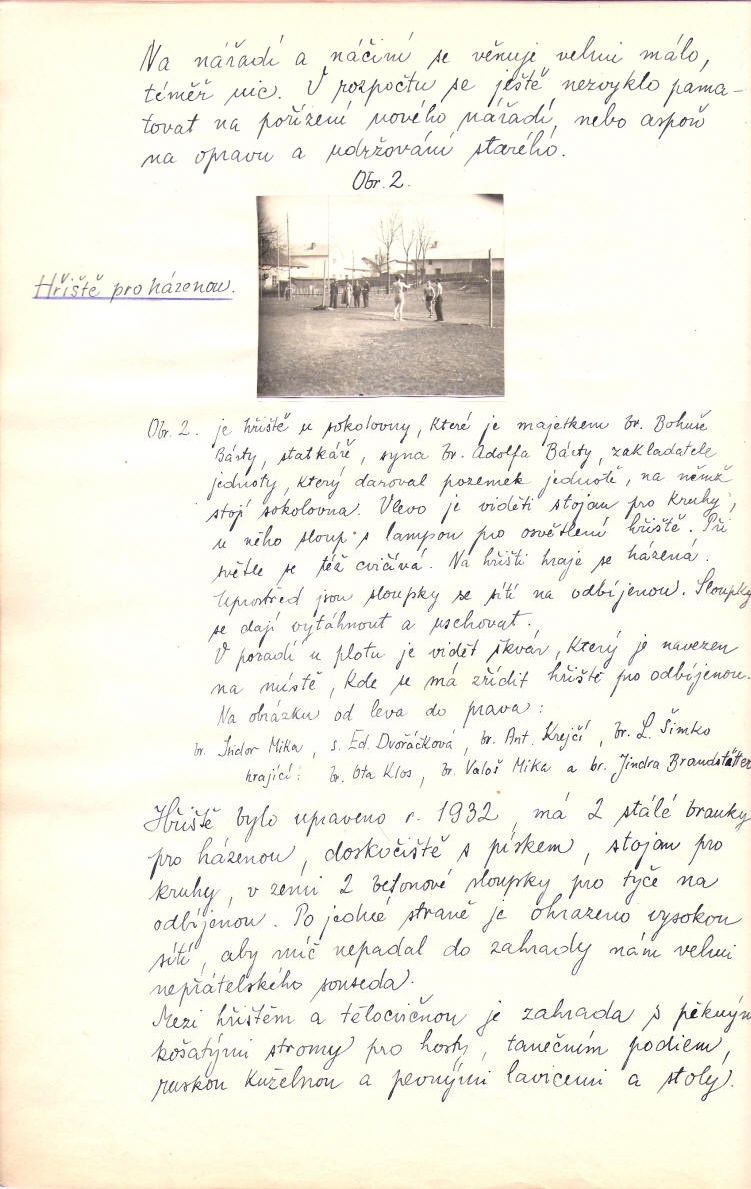 Na nářadí a náčiní se věnuje velmi málo,
téměř nic. V rozpočtu se ještě nezvyklo pama-
tovat na pořízení nového nářadí, nebo aspoň
na opravu a udržování starého.
Obr. 2.
Hřiště pro házenou.
Obr. 2. je hřiště u sokolovny, které je majetkem br. Bohuše
Bárty, statkáře, syna br. Adolfa Bárty, zakladatele
jednoty, který daroval pozemek jednotě, na němž
stojí sokolovna. Vlevo je viděti stojan pro kruhy,
u něho sloup s lampou pro osvětlení hřiště. Při
světle se též cvičívá. Na hřišti hraje se házená.
Uprostřed jsou sloupky se sítí na odbíjenou. Sloupky
se dají vytáhnout a uschovat.
V pozadí u plotu je vidět škvár, který je navezen
na místě, kde se má zřídit hřiště pro odbíjenou.
Na obrázku od leva do prava:
br. Isidor Mika, s. Ed. Dvořáčková, br. Ant. Krejčí, br. L. Šimko
hrající: br. Ota Klos, br. Valoš Mika a br. Jindra Brandstätter
Hřiště bylo upraveno r. 1932, má 2 stálé branky
pro házenou, doskočiště s pískem, stojan pro
kruhy, v zemi 2 betonové sloupky pro tyče na
odbíjenou. Po jedné straně je ohrazeno vysokou
sítí, aby míč nepadal do zahrady nám velmi
nepřátelského souseda.
Mezi hřištěm a tělocvičnou je zahrada s pěkným
košatými stromy pro hosty, tanečním podiem,
ruskou kuželnou a pevnými lavicemi a stoly.